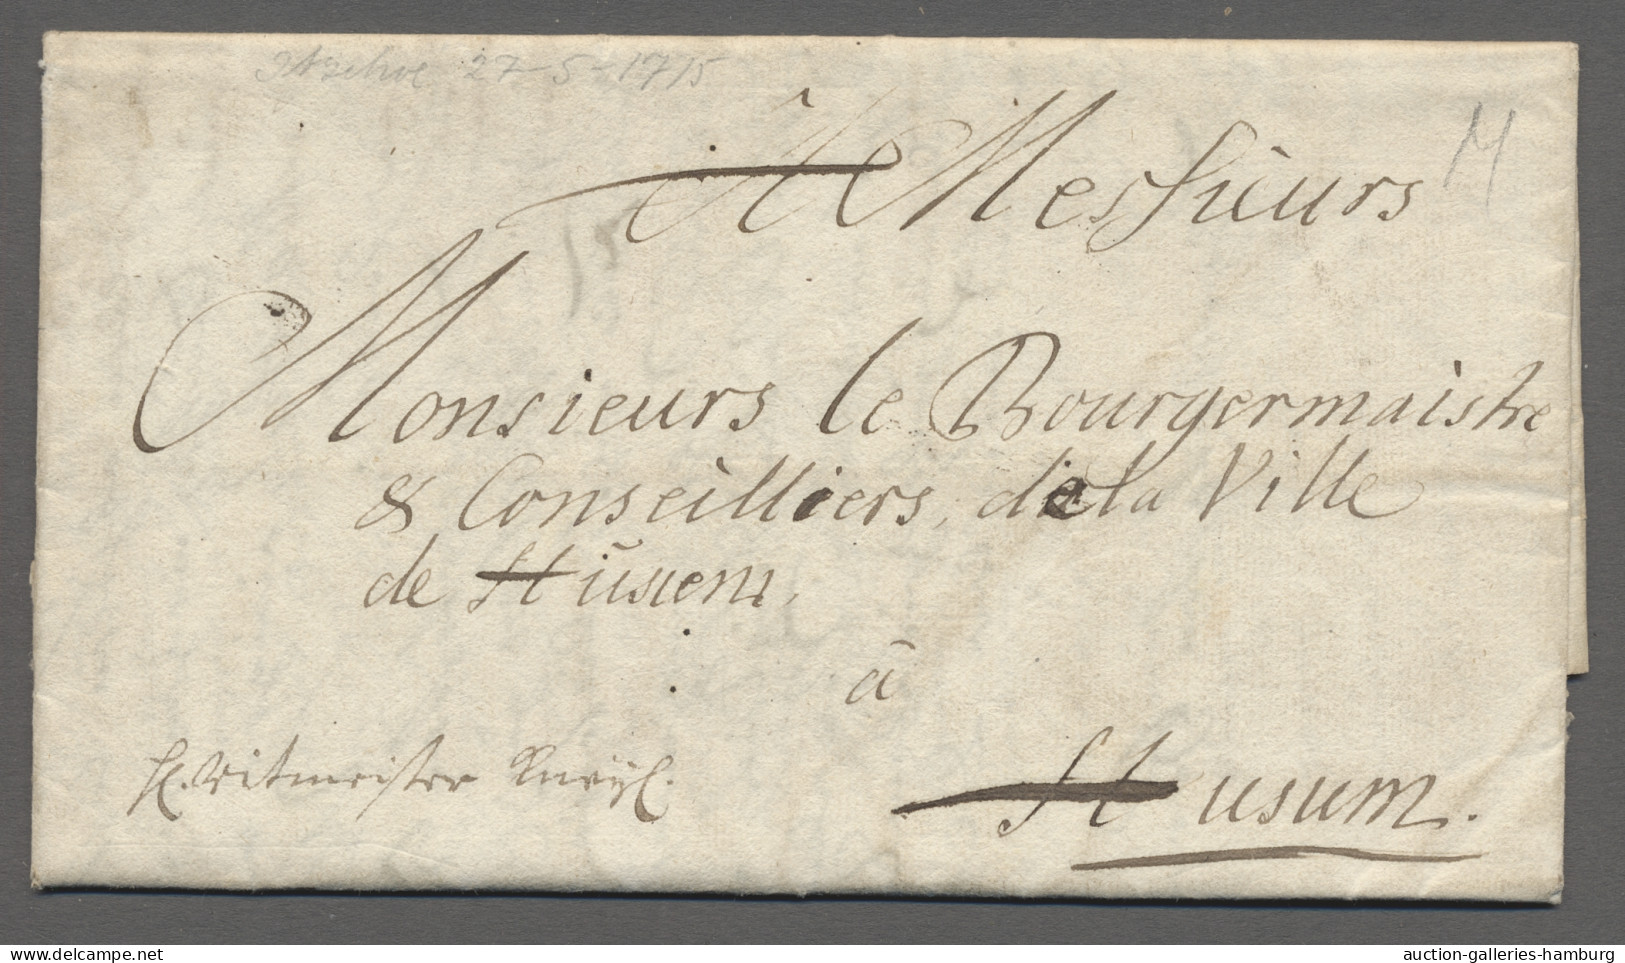 Itzehoe 27-5-1715
M
A Messieurs
15
Monsieurs le Bourgermaistre
& Conseilliers, de la Ville
de Husum,
à
H. Ritmeister
Husum.
auction-galleries-hamburg